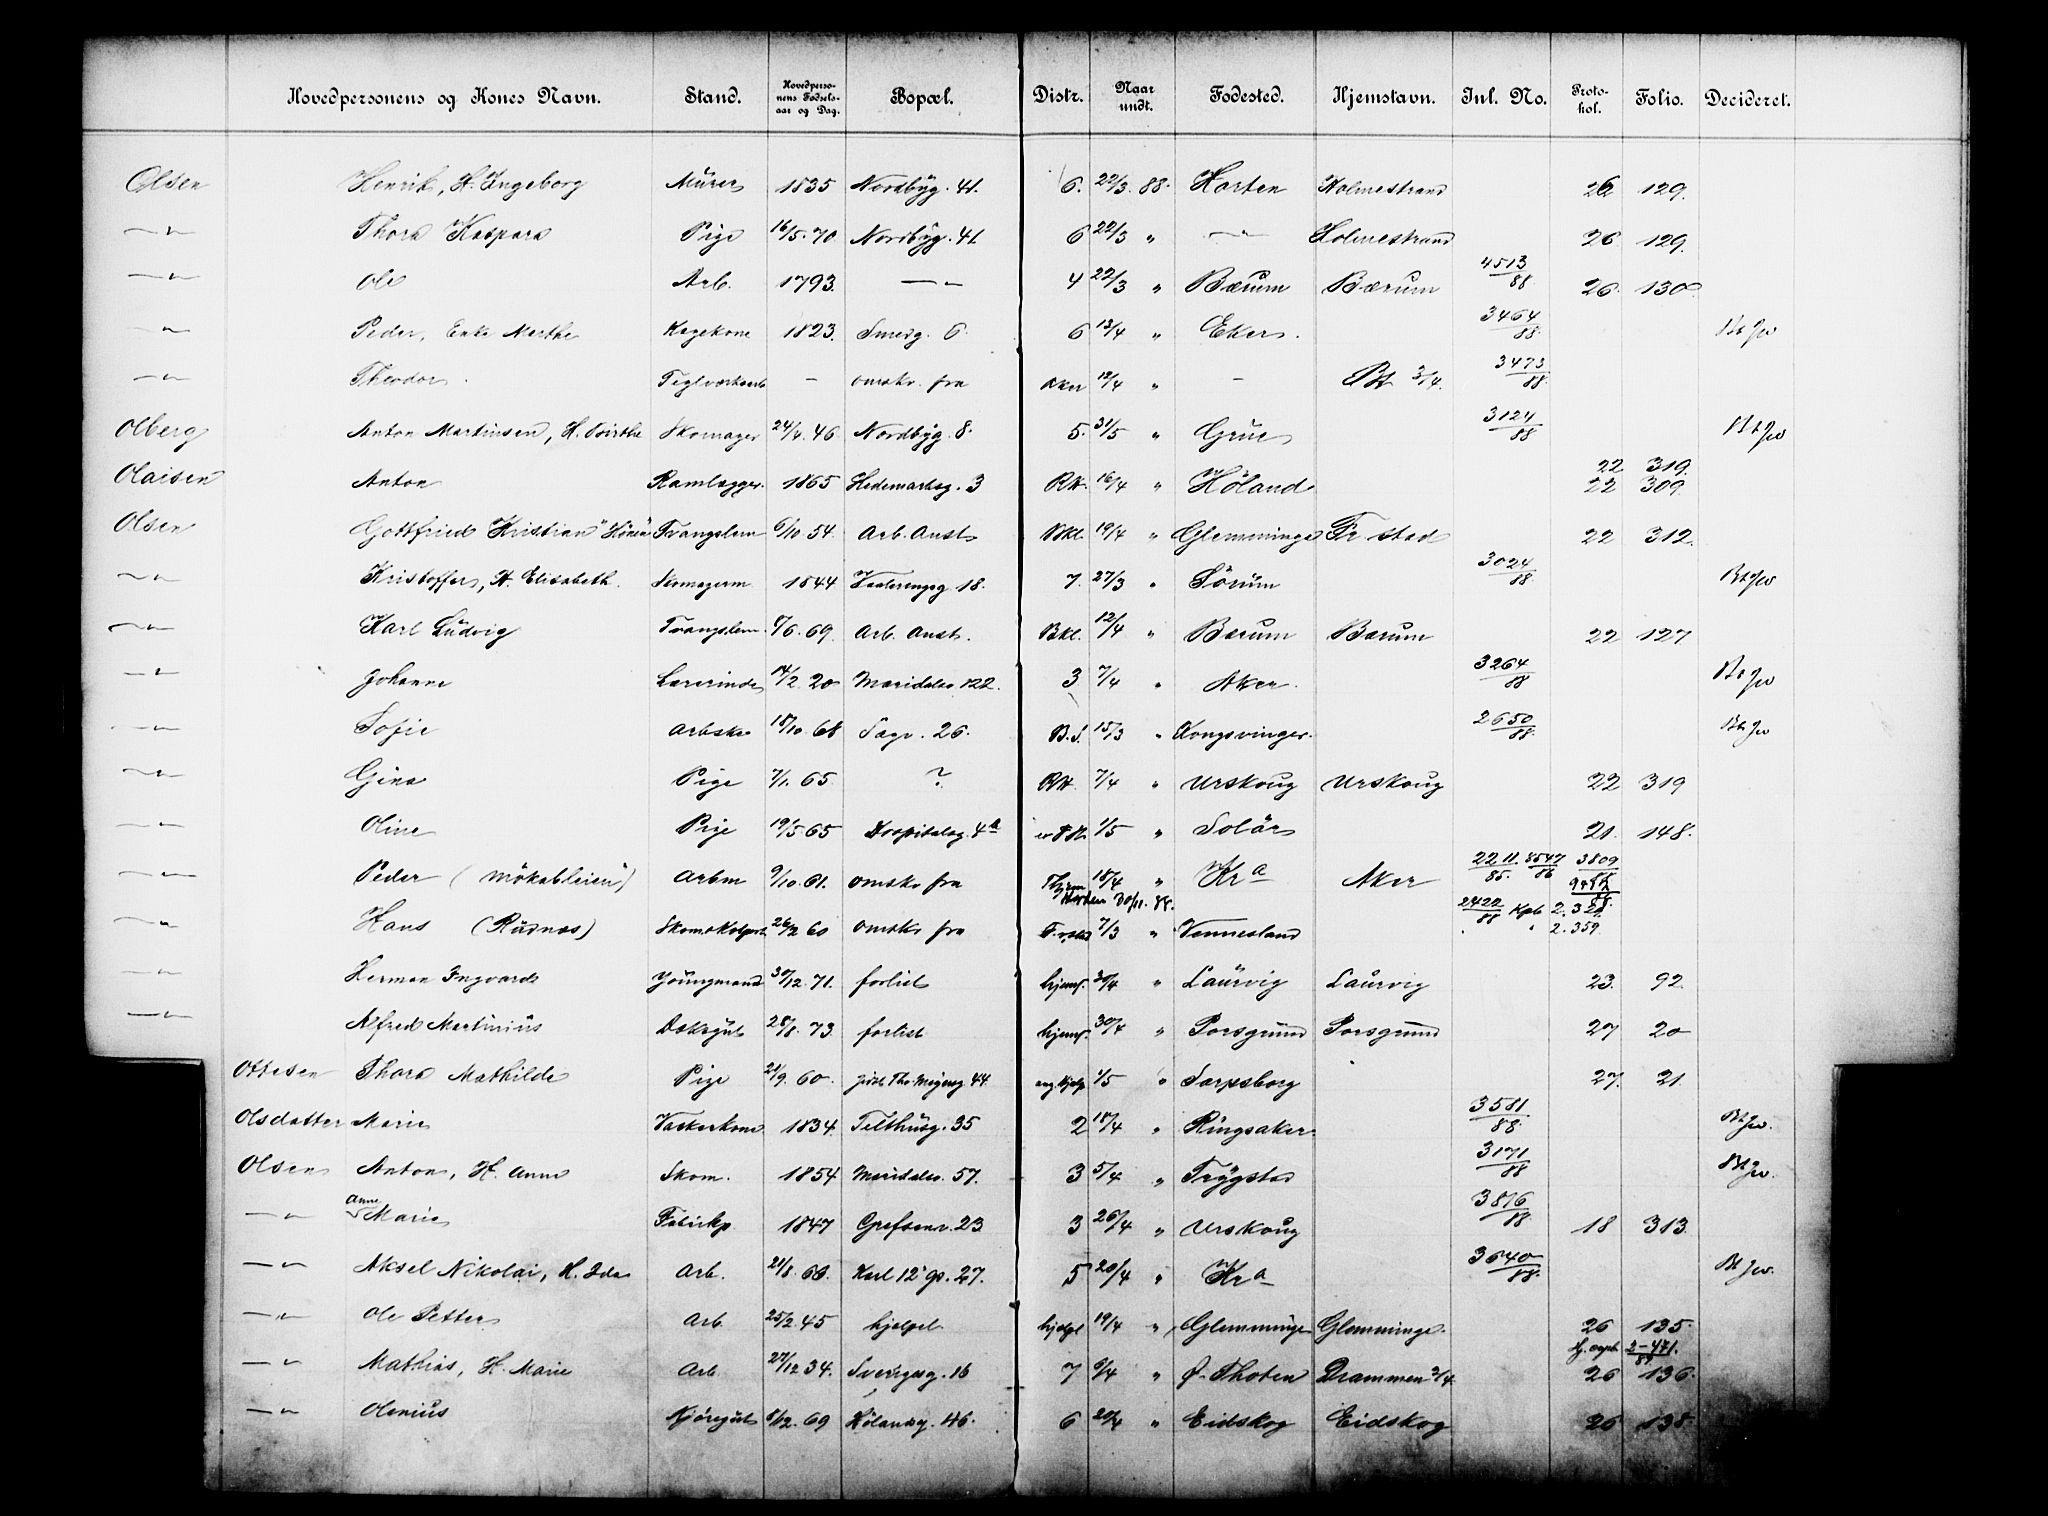 Hovedpersonens og Kones Navn. Stand. Hovedpersonens Fødselsaar og Dag. Bopæl. Distr. Naar undt. Fødested. Hjemstavn. Inl. No. Protokol. Folio. Decideret.
Olsen Henrik, H. Ingeborg Murer 1835 Nordbyg. 41. 6. 22/3 88. Horten Holmestrand 26 129.
—"— Thora Kaspara Pige 16/5.70 Nordbyg. 41. 6 22/3 " —"— Holmestrand 26 129.
—"— Ole Arb. 1793. —"— 4 22/3 " Bærum Bærum 4513/88 26. 130
—"— Peder, Enke Marthe 1823. Smedg. 6. 6 13/4 " Eker. 3464/88
—"— Theodor. Teglværksarb — omskr. fra Aker 12/4 " — 3/4. 3473/88
Olberg Anton Martinsen, H. Skomager 24/4.46 Nordbyg. 8. 5. 31/5 " Grue 3124/88
Olaisen Anton 1865 Hedemarksg. 3 16/4 " Höland 22 319. 22 309.
Olsen Gottfried Kristian Tvangslem 6/10.54. Arb. Anst. 19/4 " Glemminge Fr.stad 22 312.
—"— Kristoffer, H. Elisabeth. Skomagerm. 1844 Vaalerengsg 18. 7. 27/3 " Sörum 3024/88
—"— Karl Ludvig Tvangslem 6.69. Arb. Anst. Bkl. 12/4 " Bærum Bærum 22 127
—"— Johanne Lærerinde 14/2.20 Maridalsv. 122. 3 7/4 " Aker. 3264/88
—"— Sofie Arbske 18/10.68 Sagv. 26. B.S. 15/3 " Kongsvinger. 2650/88
—"— Gina Pige 7/1.65 ? 7/4 " Urskoug Urskoug 22 319
—"— Oline Pige 19/5.65 Hospitalsg. 4a 1/5 " Solör 21. 148.
—"— Peder ( ) Arbm 9/10.61. omskr fra 18/4 " Kr a Aker 2211/85. 8547/86 3809/88
Horten 30/11. 88.
—"— Hans (Rudnæs) 26/2 60 omskr fra 7/3 " Vennesland 2422/88 Kpb 2.320. 2.359.
—"— Herman Ingvard Youngmand 30/12.71. forlist hjemf. 30/4 " Laurvig Laurvig 23. 92.
—"— Alfred Martinius Dæksgut 28/8.73 forlist hjemf. 30/4 " Porsgrund Porsgrund 27 20
Ottesen Thora Mathilde Pige 21/9.60. Meyersg 44. 1/5 " Sarpsborg 27. 21.
Olsdatter Marie Vaskerkone 1834. Telthusg. 35 2 18/4 " Ringsaker. 3581/88
Olsen Anton, H. Anne Skom. 1854 Maridalsv. 57. 3 5/4 " Trygstad 3171/88
—"— Anne Marie Fabrikp 1847 Grefsenv. 23 3 26/4 " Urskoug 3816/88 18 313.
—"— Aksel Nikolai, H. Ida Arb. 21/8.66. Karl 12' g. 27. 5 20/4 " Kr a 3640/88.
—"— Ole Petter Arb 25/2.45 hjelpel 19/4 " Glemminge Glemminge. 26 135.
—"— Mathias, H. Marie Arb. 27/12 34. Sverigesg. 16 7 6/4 " Ø. Thoten Drammen 3/4. 26 136.
—"— Olenius Kjöregut 8/12.69 Hölandsg. 46. 6 20/4 " Eidskog Eidskog 26 138.